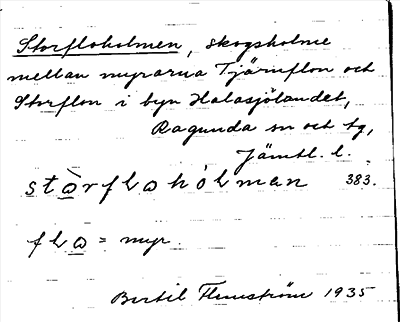 Storfloholmen, skogsholme
mellan myrarna Tjärnflon och
Storflon i byn Halasjölandet,
Ragunda sn och tg,
Jämtl. l.
stɷ̀rflɷhólman 383.
flɷ = myr.
Bertil Flemström 1935